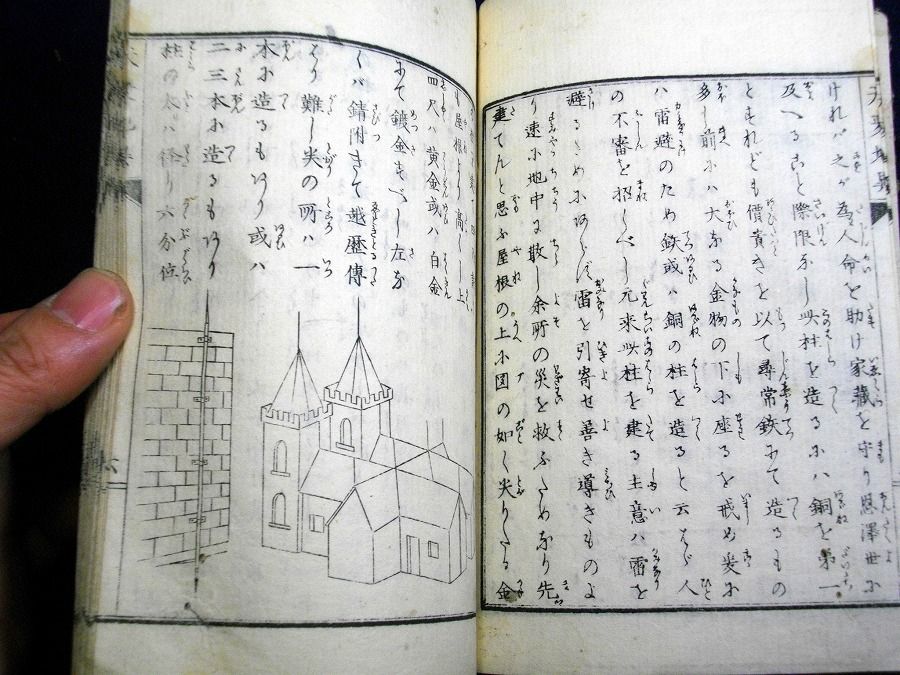 けれバ之が為人命を助け家蔵を守り恩澤世に
及べること際限なし此柱を造るにハ銅を第一
ともれども價貴きを以て尋常鉄にて造るもの
多し前にハ大なる金物の下に座るを戒め爰に
ハ雷避のため鉄或ハ銅の柱を造ると云はゞ人
の不審を招くべし元来此柱を建る主意ハ雷を
避るために非らず雷を引寄せ善き導きものよ
り速に地中に散し余所の災を救ふためなり先
建てんと思ふ屋根の上に図の如く尖りたる金
屋根より高くし上
四尺ハ黄金或ハ白金
にて鍍金すべし左な
くバ錆附きて越歴傳
はり難し尖の所ハ一
本に造るもあり或ハ
二三本に造るもあり
柱の太ハ径り六分位